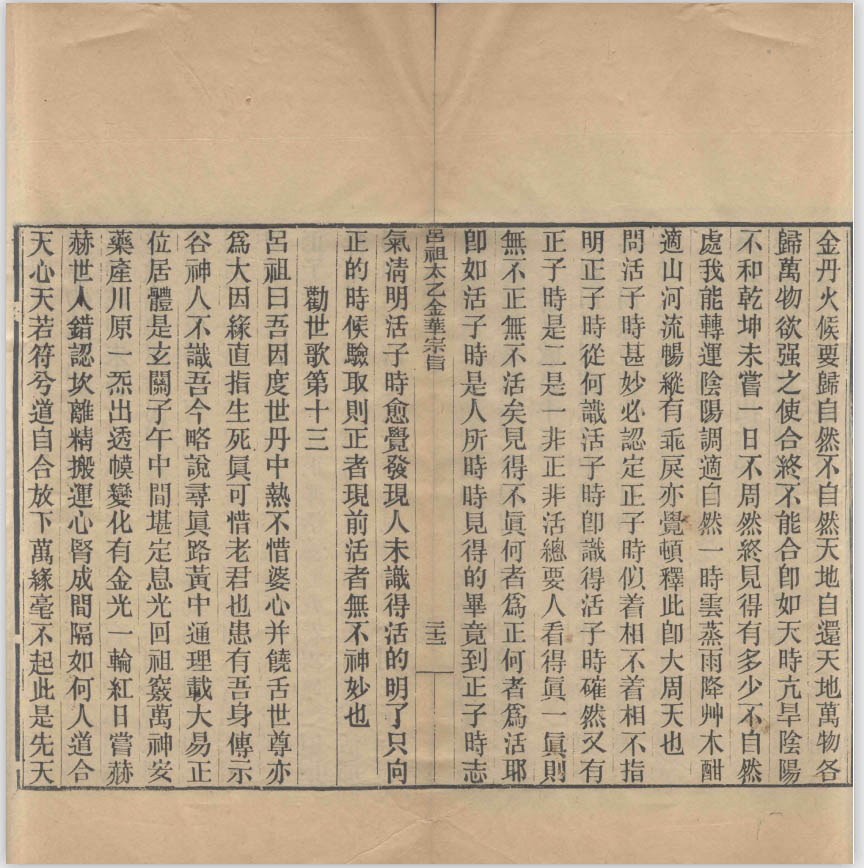 金丹火候要歸自然不自然天地自還天地萬物各
歸萬物欲强之使合終不能合卽如天時亢旱陰陽
不和乾坤未嘗一日不周然終見得有多少不自然
處我能轉運陰陽調適自然一時雲蒸雨降艸木酣
適山河流暢縱有乖戾亦覺頓釋此卽大周天也
問活子時甚妙必認定正子時似着相不着相不指
明正子時從何識活子時卽識得活子時確然又有
正子時是二是一非正非活總要人看得眞一眞則
無不正無不活矣見得不眞何者爲正何者爲活耶
卽如活子時是人所時時見得的畢竟到正子時志
呂祖太乙金華宗旨
二十三
氣清明活子時愈覺發現人未識得活的明了只向
正的時候驗取則正者現前活者無不神妙也
勸世歌第十三
呂祖曰吾因度世丹中熱不惜婆心并饒舌世尊亦
爲大因緣直指生死眞可惜老君也患有吾身傳示
谷神人不識吾今略說尋眞路黃中通理載大易正
位居體是玄關子午中間堪定息光回祖竅萬神安
藥產川原一炁出透幙變化有金光一輪紅日嘗赫
赫世人錯認坎離精搬運心腎成間隔如何人道合
天心天若符兮道自合放下萬緣毫不起此是先天